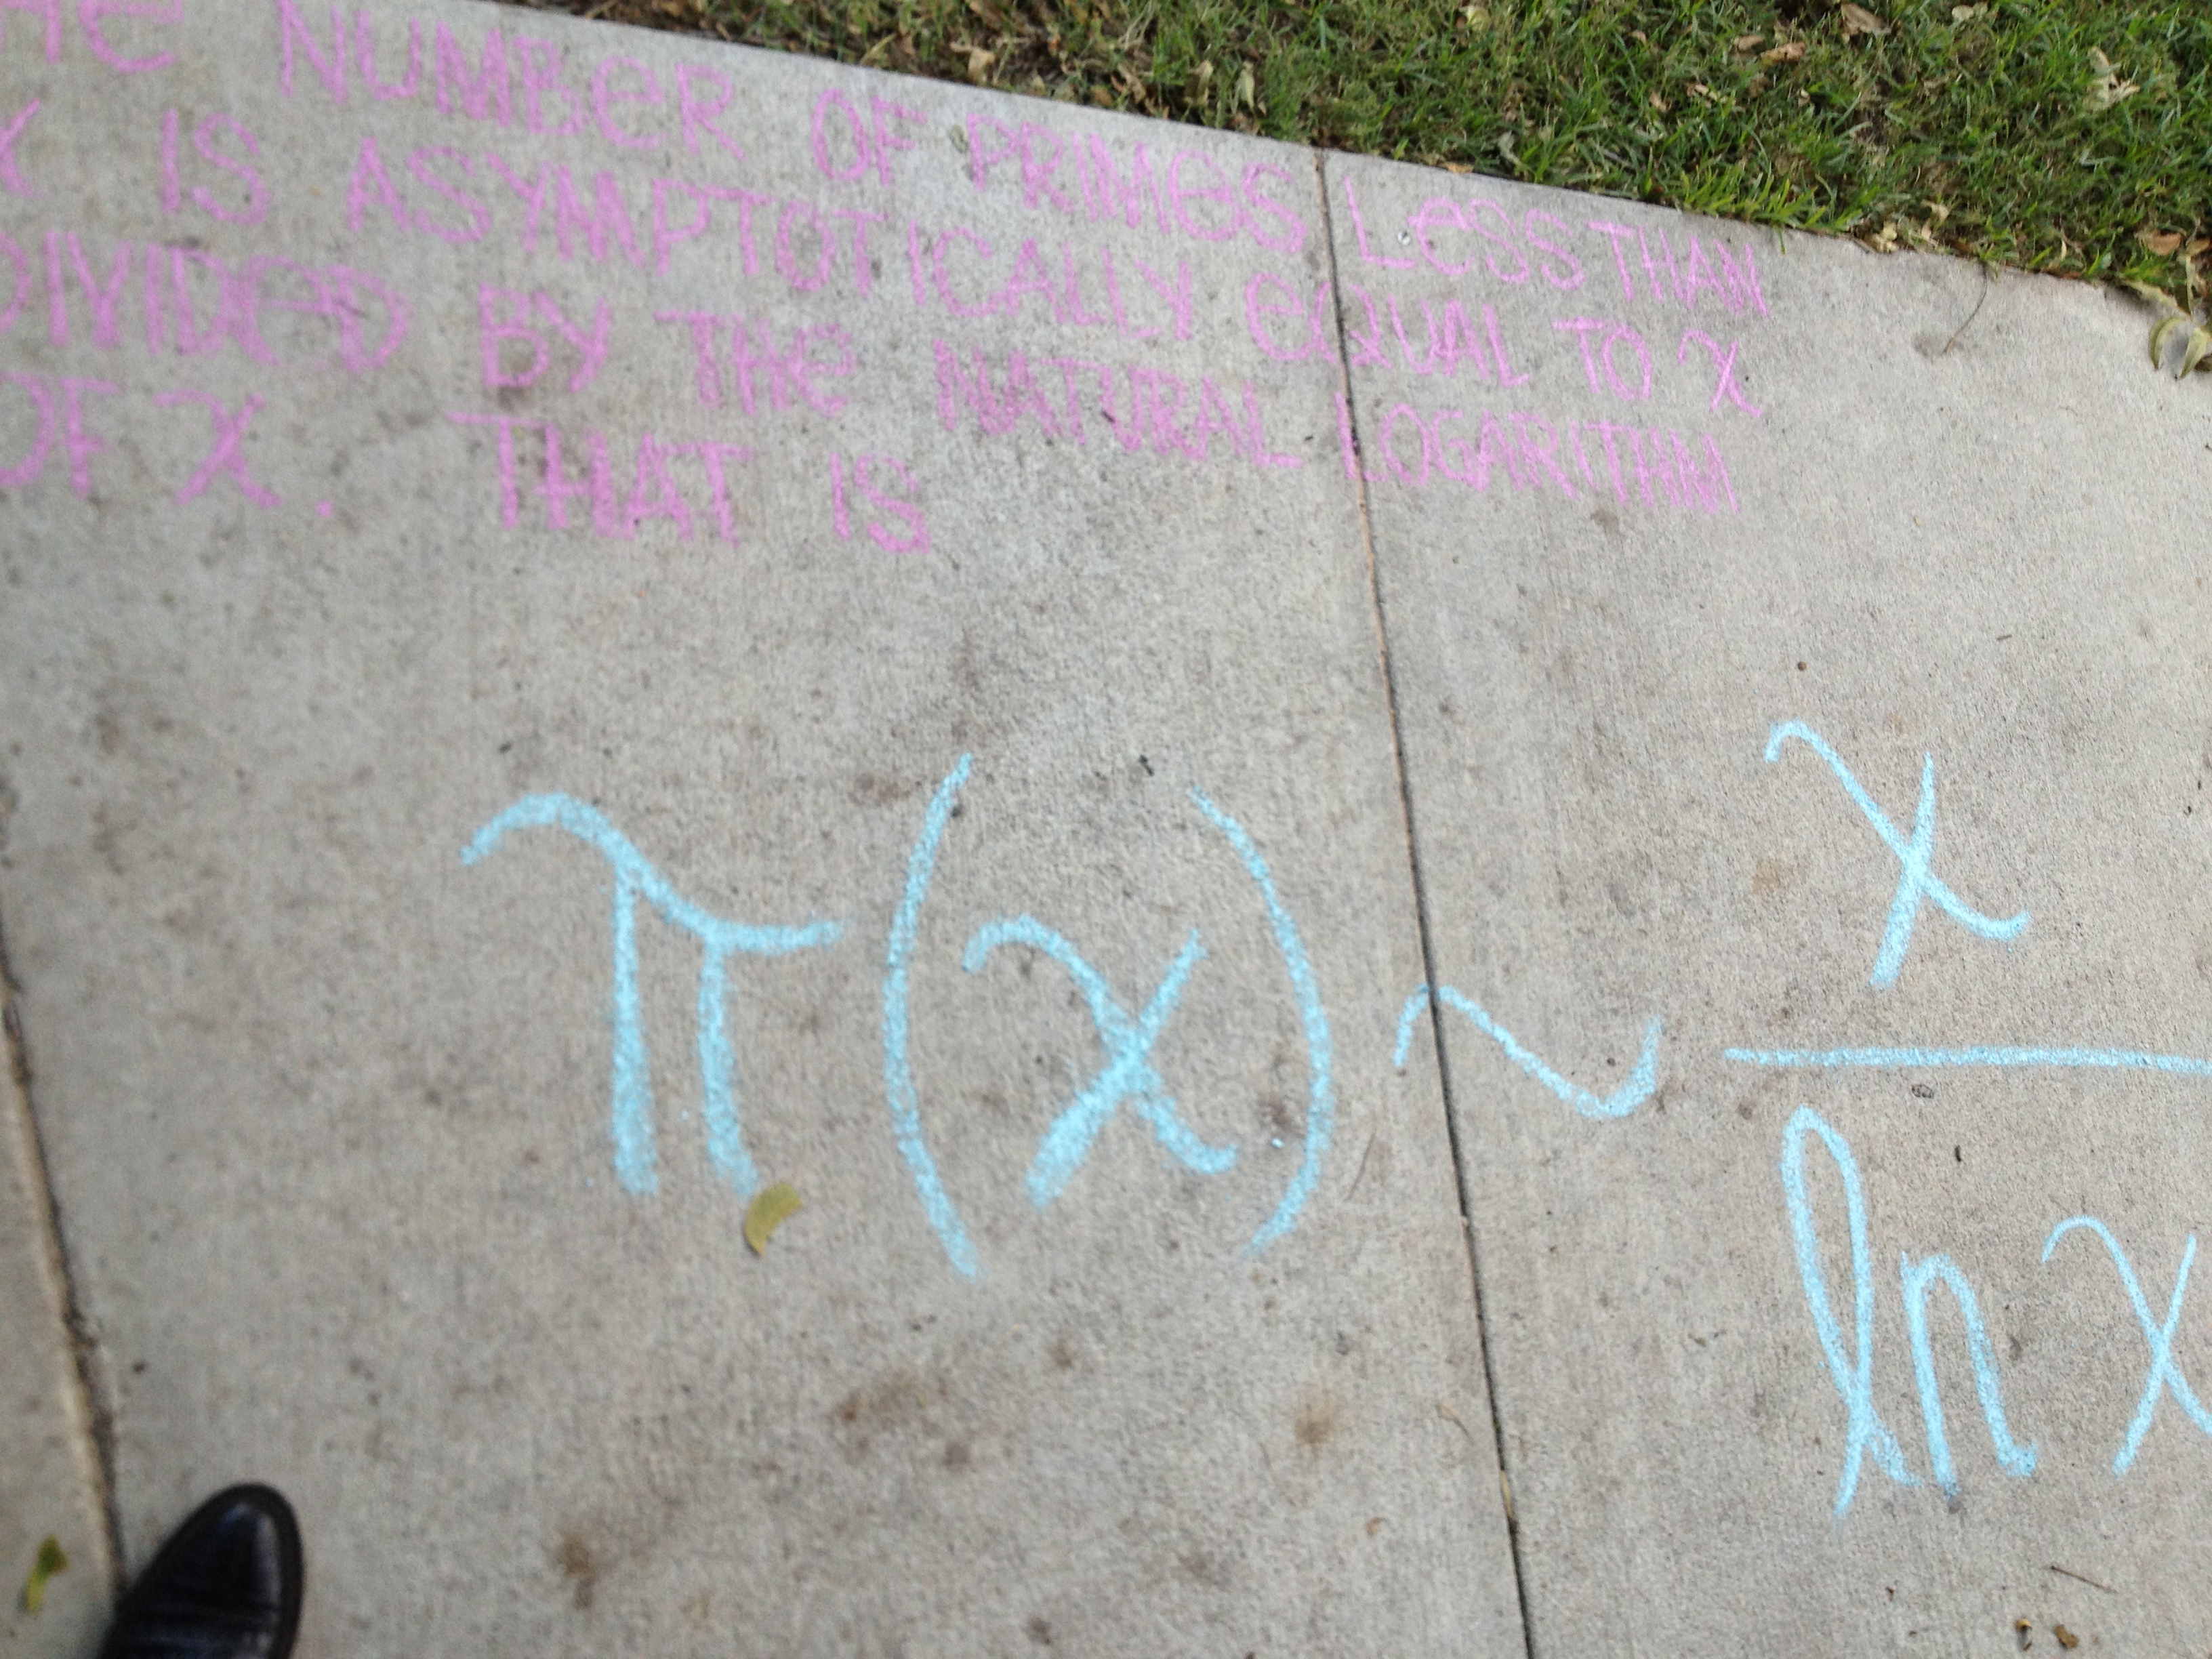 THE NUMBER OF PRIMES LESS THAN
X IS ASYMPTOTICALLY EQUAL TO X
DIVIDED BY THE NATURAL LOGARITHM
OF X. THAT IS
π(x) ~ x / ln x